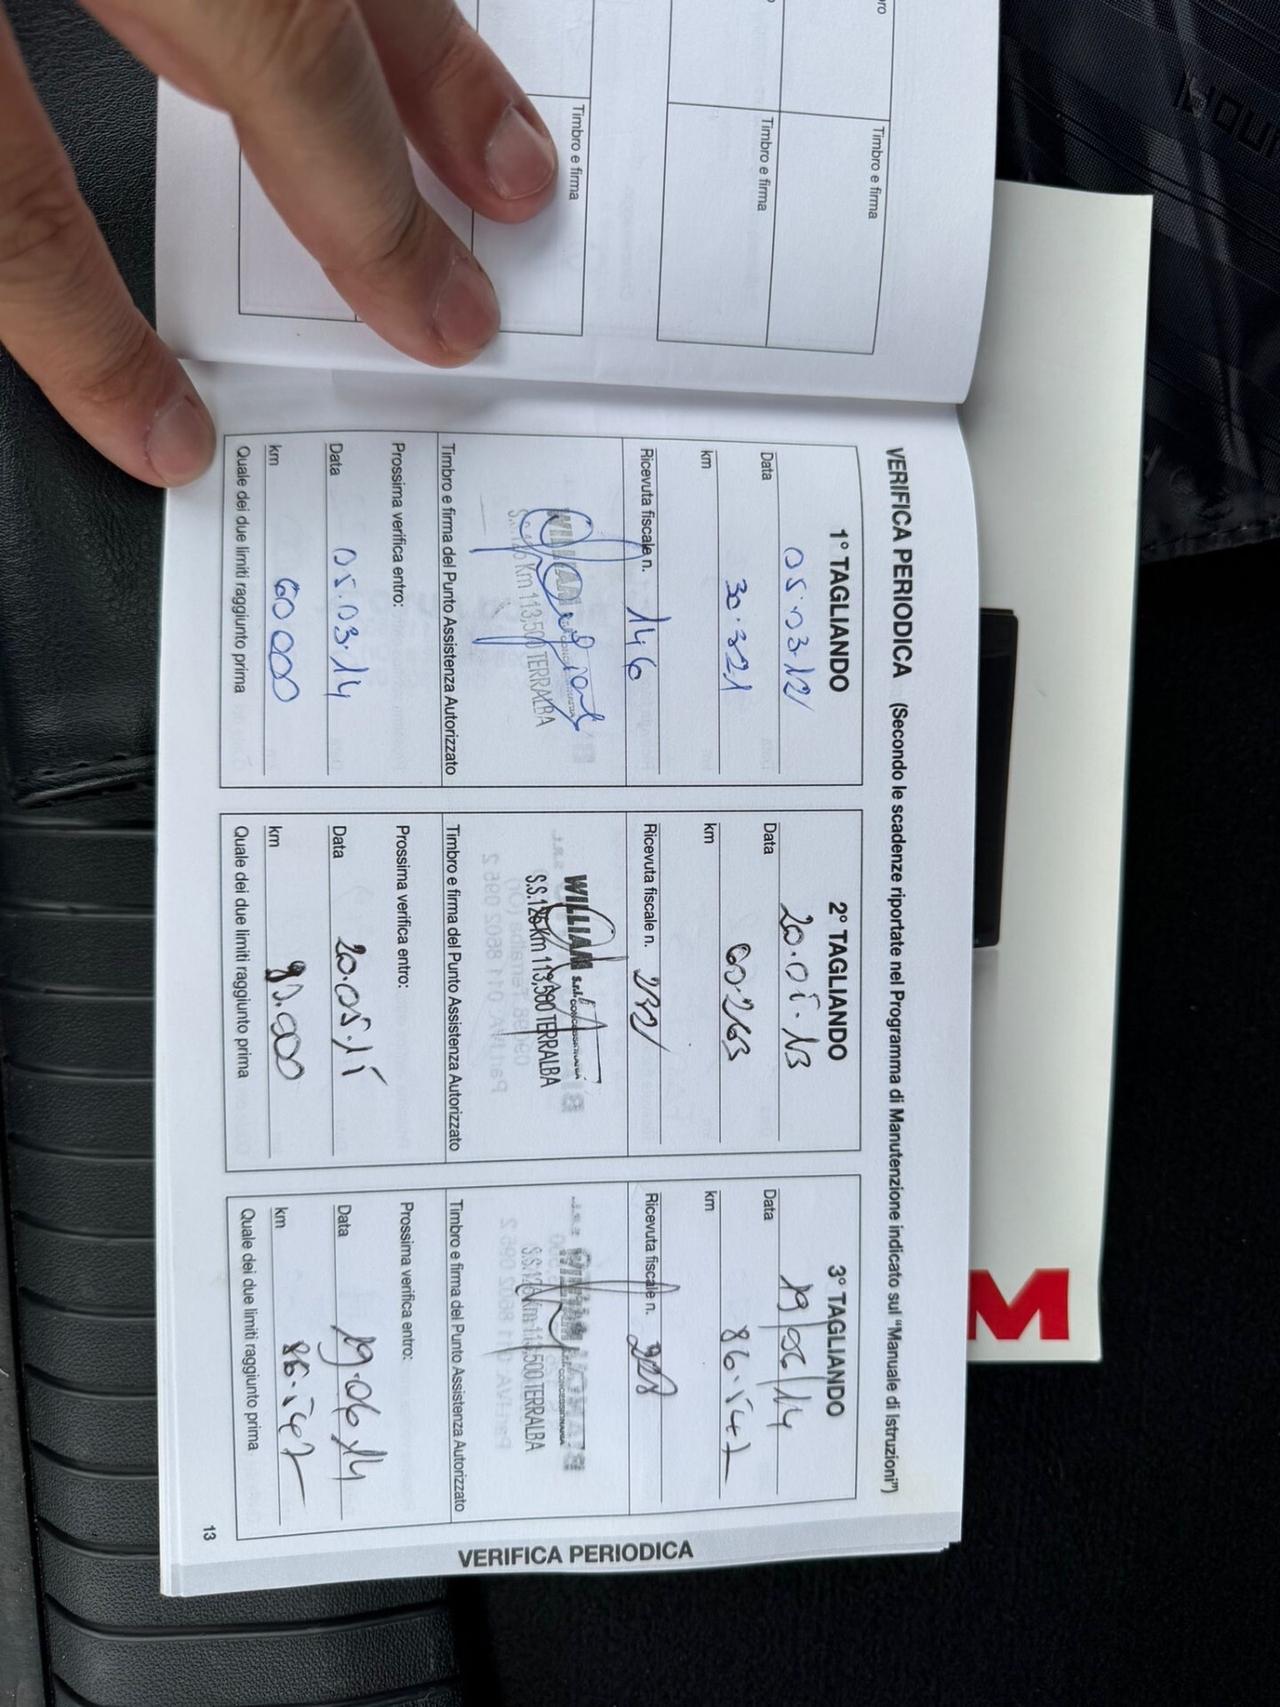 Timbro e firma
Timbro e firma
Timbro e firma
VERIFICA PERIODICA (Secondo le scadenze riportate nel Programma di Manutenzione indicato sul "Manuale di Istruzioni")
1° TAGLIANDO
Data 05.03.12
km 30.321
Ricevuta fiscale n. 146
WILLIAM
S.S.126 Km 113,500 TERRALBA
Timbro e firma del Punto Assistenza Autorizzato
Prossima verifica entro:
Data 05.03.14
km 60000
Quale dei due limiti raggiunto prima
2° TAGLIANDO
Data 20.05.13
km 60.263
Ricevuta fiscale n.
WILLIAM s.r.l. CONCESSIONARIA
S.S.126 Km 113,500 TERRALBA
Timbro e firma del Punto Assistenza Autorizzato
Prossima verifica entro:
Data 20.05.15
km 90.000
Quale dei due limiti raggiunto prima
3° TAGLIANDO
Data 19/06/14
km 86.547
Ricevuta fiscale n.
WILLIAM
S.S.126 Km 113,500 TERRALBA
Timbro e firma del Punto Assistenza Autorizzato
Prossima verifica entro:
Data 19.06.14
km 86.547
Quale dei due limiti raggiunto prima
VERIFICA PERIODICA
13
M